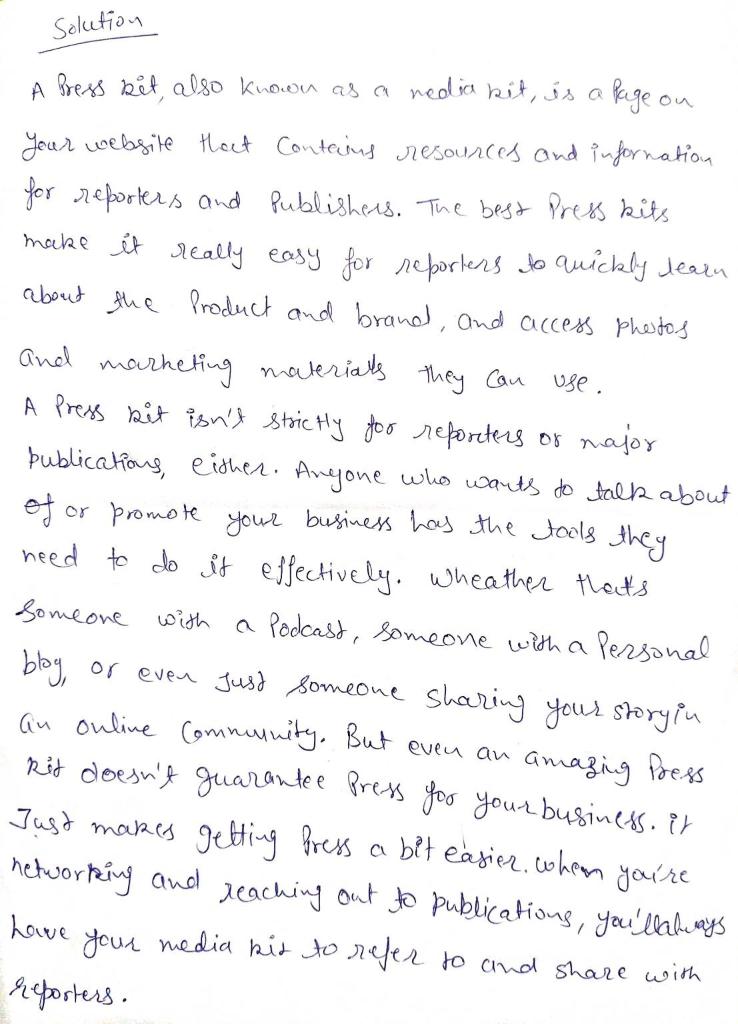 Solution
A Press kit, also known as a media kit, is a Page on
Your website that Contains resources and information
for reporters and Publishers. The best Press kits
make it really easy for reporters to quickly learn
about the Product and brand, and access photos
and marketing materials they can use.
A Press kit isn't strictly for reporters or major
publications, either. Anyone who wants to talk about
of or promote your business has the tools they
need to do it effectively. Wheather that's
Someone with a Podcast, Someone with a Personal
blog, or even Just Someone Sharing your story in
an online Community. But even an amazing Press
kit doesn't guarantee Press for your business. it
Just makes getting Press a bit easier. when you're
networking and reaching out to publications, you'll always
have your media kit to refer to and share with
reporters.